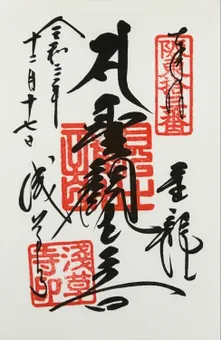 奉拝
坂東拾三番
金龍山
聖観世音
令和三年
十二月十七日
浅草寺
浅草寺印